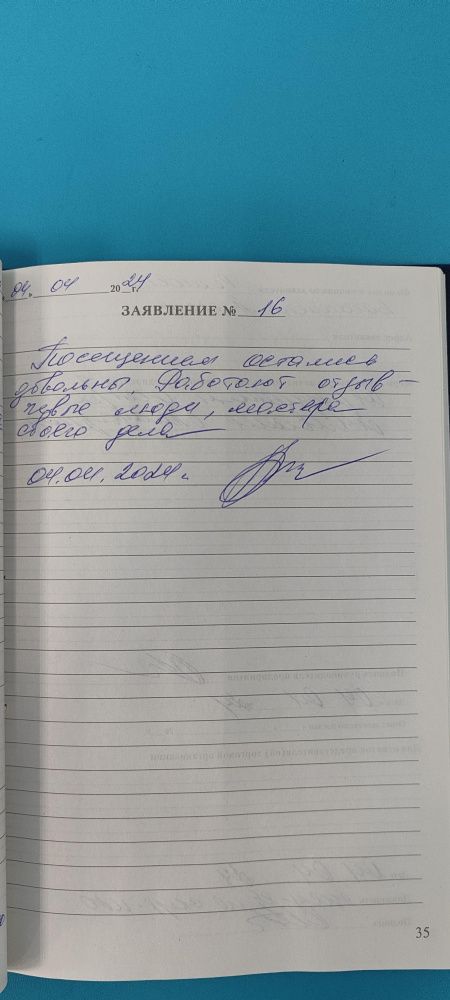 04. 04 2024 г.
ЗАЯВЛЕНИЕ № 16
Посещением остались
довольны. Работают отзыв-
чивые люди, мастера
своего дела
04.04.2024г.
35